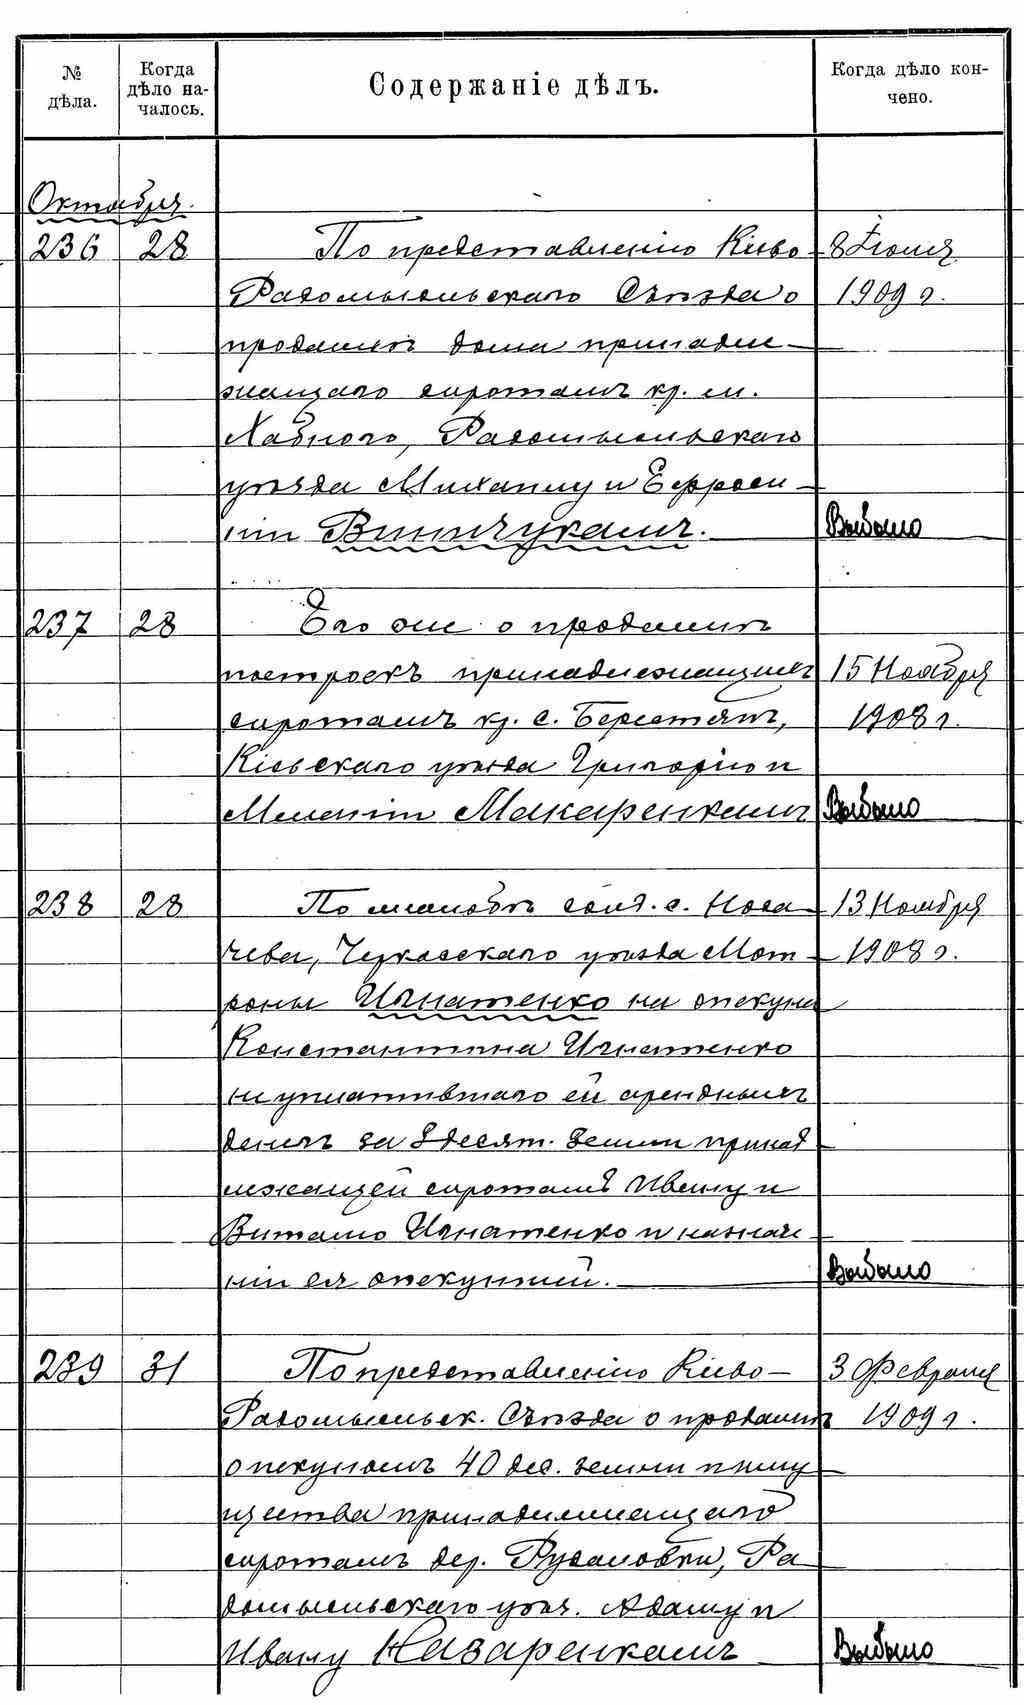 № дѣла.
Когда дѣло на-
чалось.
Содержаніе дѣлъ.
Когда дѣло кон-
чено.
Октября.
236 28 По представленію Кіево- 8 Іюля
Радомысльскаго Съѣзда о 1909 г.
продажѣ дома принадле-
жащаго сиротамъ кр. м.
Хабного, Радомысльскаго
уѣзда Михаилу и Ефроси-
ніи Винничукамъ. Выбыло
237 28 Его же о продажѣ
построекъ принадлежащихъ 15 Ноября
сиротамъ кр. с. Берестяги, 1908 г.
Кіевскаго уѣзда Григорію и
Меланіи Макаренкамъ Выбыло
238 28 По жалобѣ солд. с. Носа- 13 Ноября
чева, Черкасскаго уѣзда Мот- 1908 г.
роны Игнатенко на опекуна
Константина Игнатенко
не уплатившаго ей арендныхъ
денегъ за 8 десят. земли принад-
лежащей сиротамъ Ивану и
Виталію Игнатенко и назначе-
ніи ея опекуншей. Выбыло
239 31 По представленію Кіево- 3 Февраля
Радомысльск. Съѣзда о продажѣ 1909 г.
опекуномъ 40 дес. земли и иму-
щества принадлежащаго
сиротамъ дер. Рудаловки, Ра-
домысльскаго уѣз. Адаму и
Ивану Назаренкамъ Выбыло